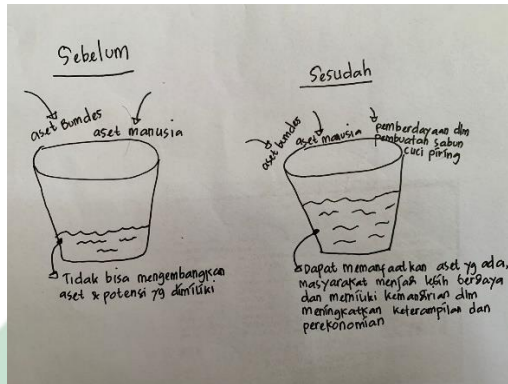 Sebelum
aset Bumdes
aset manusia
Tidak bisa mengembangkan
aset & potensi yg dimiliki
Sesudah
aset bumdes
aset manusia
pemberdayaan dlm
pembuatan sabun
cuci piring
Dapat memanfaatkan aset yg ada,
masyarakat menjadi lebih berdaya
dan memiliki kemandirian dlm
meningkatkan keterampilan dan
perekonomian